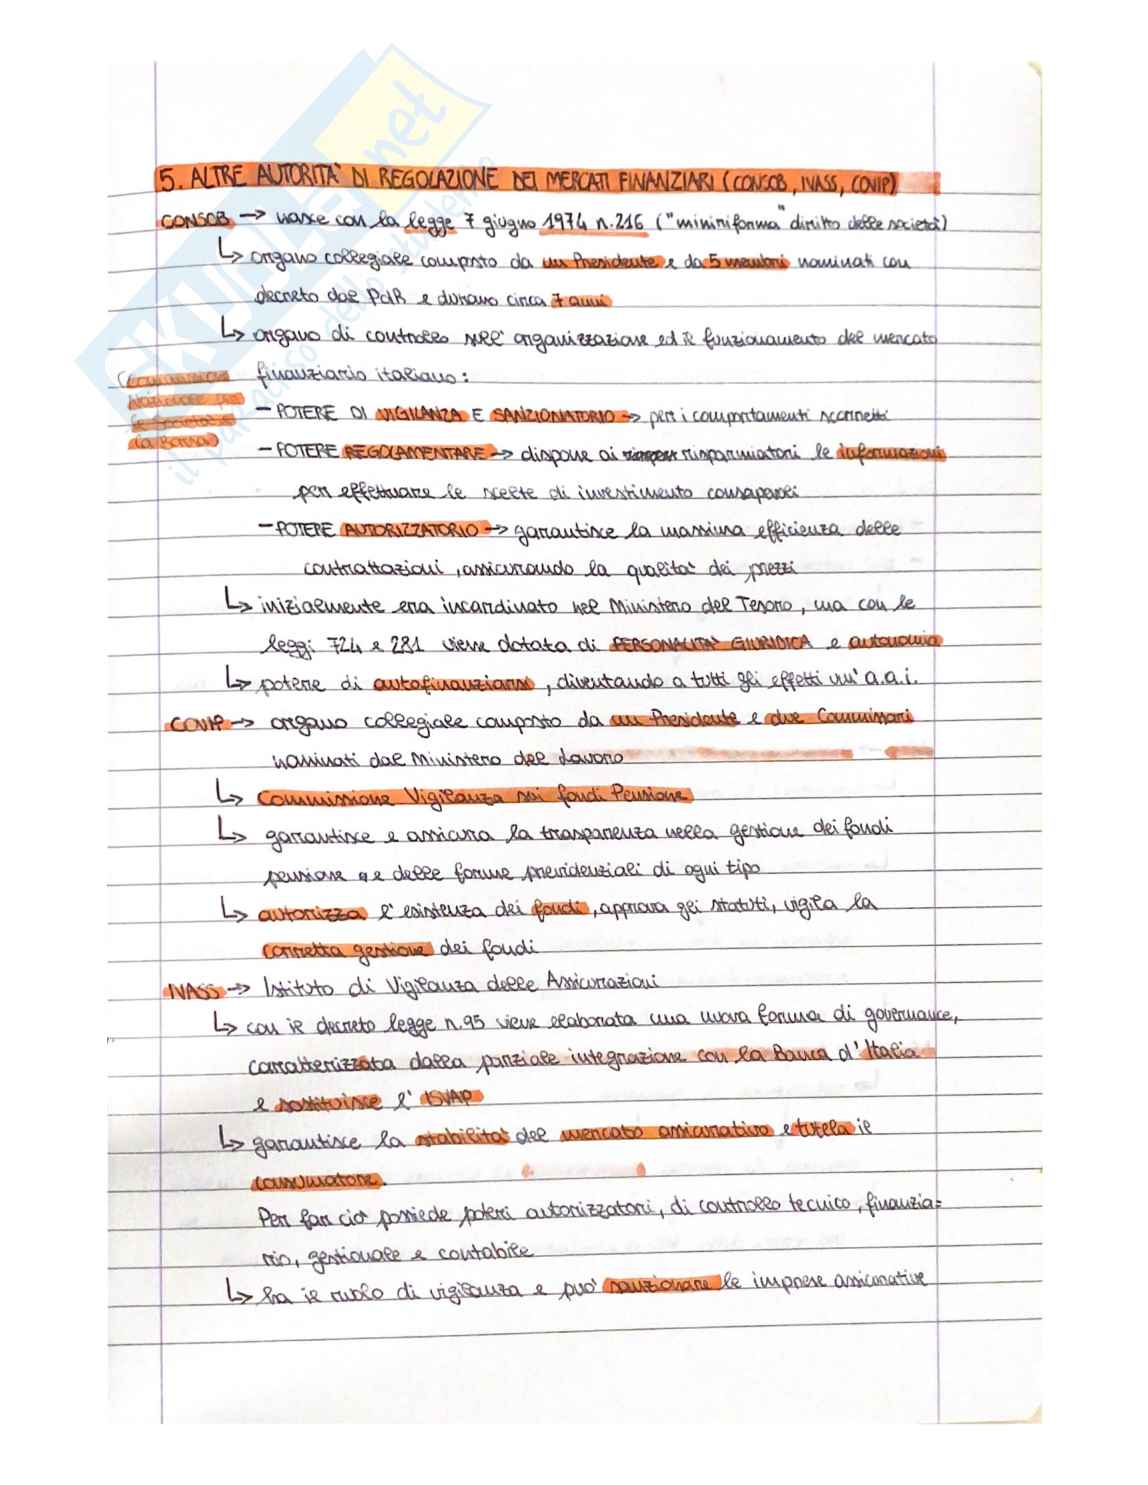 5. ALTRE AUTORITA' DI REGOLAZIONE DEI MERCATI FINANZIARI (CONSOB, IVASS, COVIP)
CONSOB → nasce con la legge 7 giugno 1974 n.216 ("miniriforma" diritto delle società)
↳ organo collegiale composto da un Presidente e da 5 membri nominati con
decreto dal PdR e durano circa 7 anni
↳ organo di controllo sull'organizzazione ed il funzionamento del mercato
finanziario italiano:
(Commissione
Nazionale per
le Società e
la Borsa)
- POTERE DI VIGILANZA E SANZIONATORIO → per i comportamenti scorretti
- POTERE REGOLAMENTARE → dispone ai risparmiatori le informazioni
per effettuare le scelte di investimento consapevoli
- POTERE AUTORIZZATORIO → garantisce la massima efficienza delle
contrattazioni, assicurando la qualità dei prezzi
↳ inizialmente era incardinato nel Ministero del Tesoro, ma con le
leggi 724 e 281 viene dotata di PERSONALITA' GIURIDICA e autonomia
↳ potere di autofinanziarsi, diventando a tutti gli effetti un'a.a.i.
COVIP → organo collegiale composto da un Presidente e due Commissari
nominati dal Ministero del Lavoro
↳ Commissione Vigilanza sui fondi Pensione
↳ garantisce e assicura la trasparenza nella gestione dei fondi
pensione e delle forme previdenziali di ogni tipo
↳ autorizza l'esistenza dei fondi, approva gli statuti, vigila la
corretta gestione dei fondi
IVASS → Istituto di Vigilanza delle Assicurazioni
↳ con il decreto legge n.95 viene elaborata una nuova forma di governance,
caratterizzata dalla parziale integrazione con la Banca d'Italia
e sostituisce l'ISVAP
↳ garantisce la stabilità del mercato assicurativo e tutela il
consumatore.
Per far ciò possiede poteri autorizzatori, di controllo tecnico, finanzia=
rio, gestionale e contabile
↳ ha il ruolo di vigilanza e può sanzionare le imprese assicurative
SKUOLA.net
il paradiso dello studente